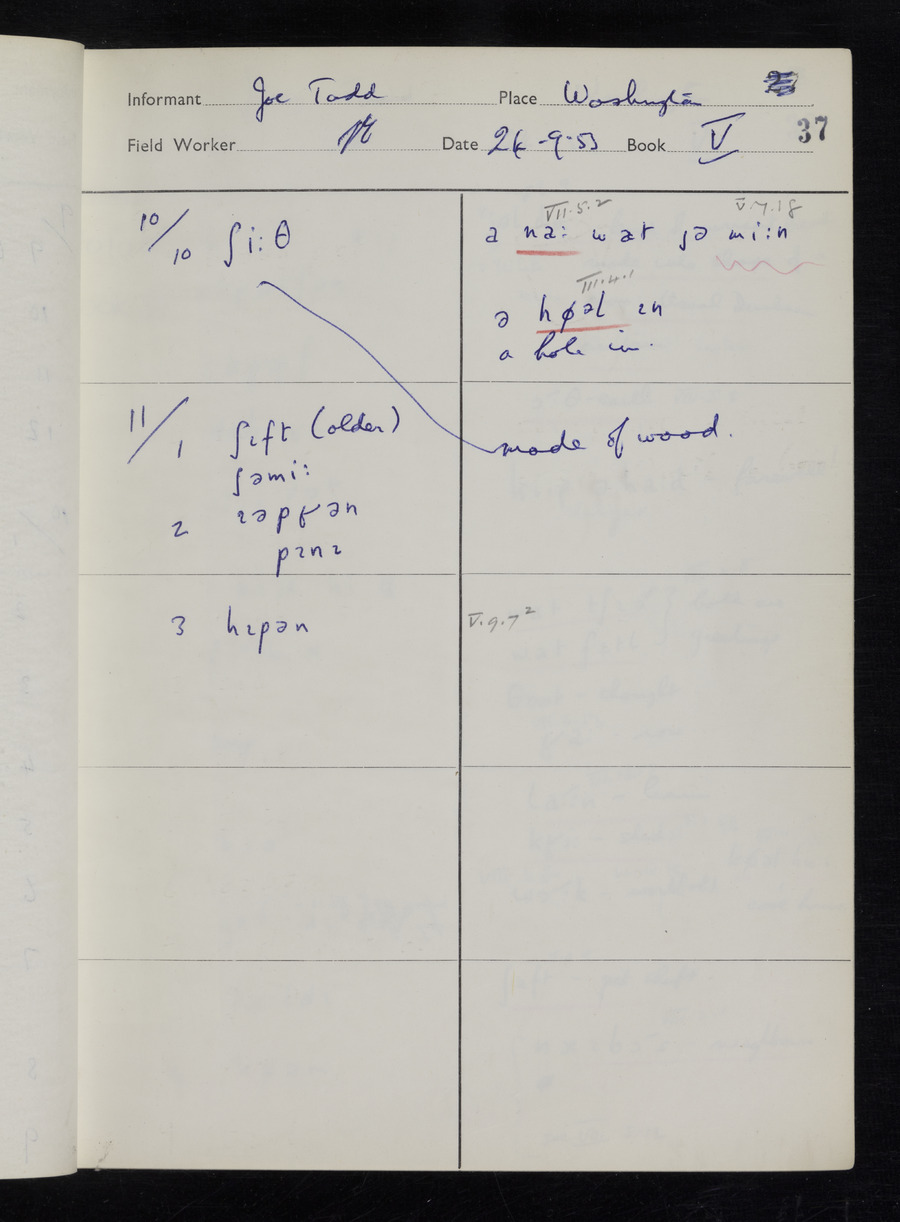 Informant Joe Todd Place Washington
37
Field Worker Date 24-9-53 Book V
10/10 ʃi:θ
VII.5.2 V.7.18
a na: wat jə mi:n
III.4.1
ə høəl ɪn
a hole in.
11/1 ʃɪft (older)
made of wood.
ʃəmi:
2
pɪnɪ
3 hɪpən
V.9.7²